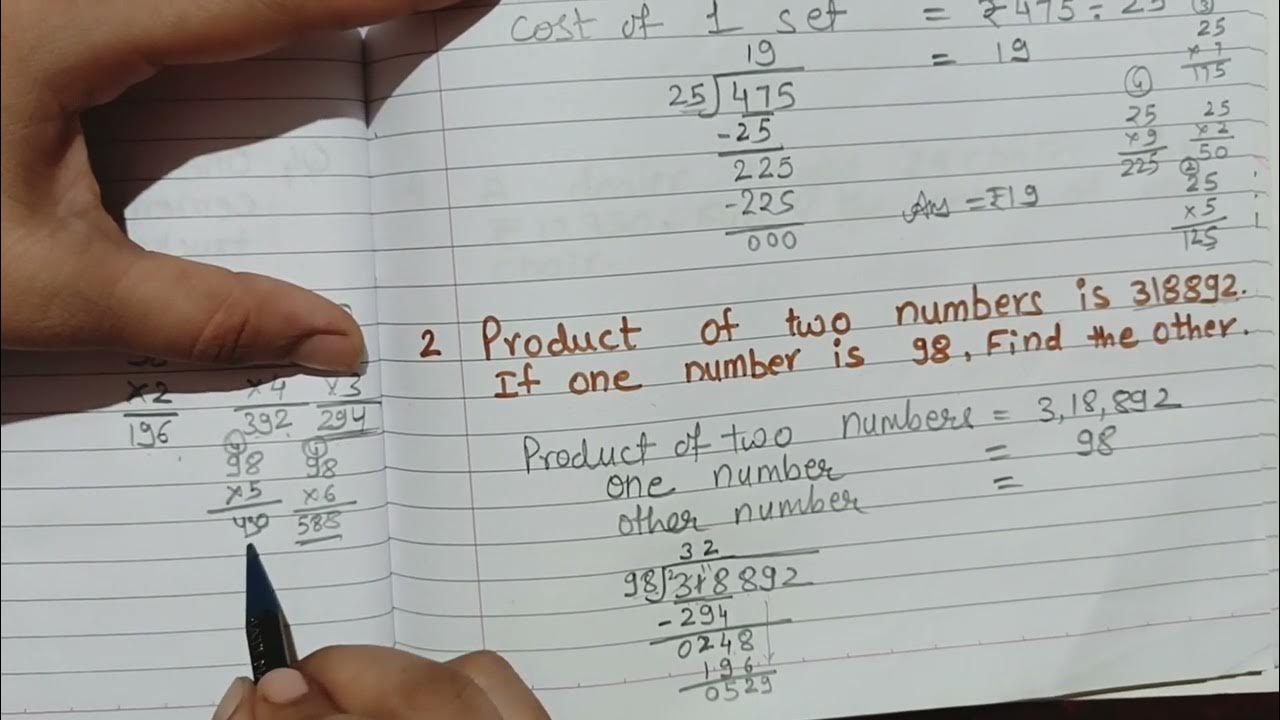 cost of 1 set = ₹475÷25
= 19
19
25)475
-25
225
-225
000
Ans = ₹19
③
25
×7
175
④
25
×9
225
25
×2
50
②
25
×5
125
2 Product of two numbers is 318892.
If one number is 98. Find the other.
Product of two numbers = 3,18,892
one number = 98
other number =
32
98)318892
-294
0248
196
0529
×2
196
×4
392
×3
294
98
×5
490
98
×6
588